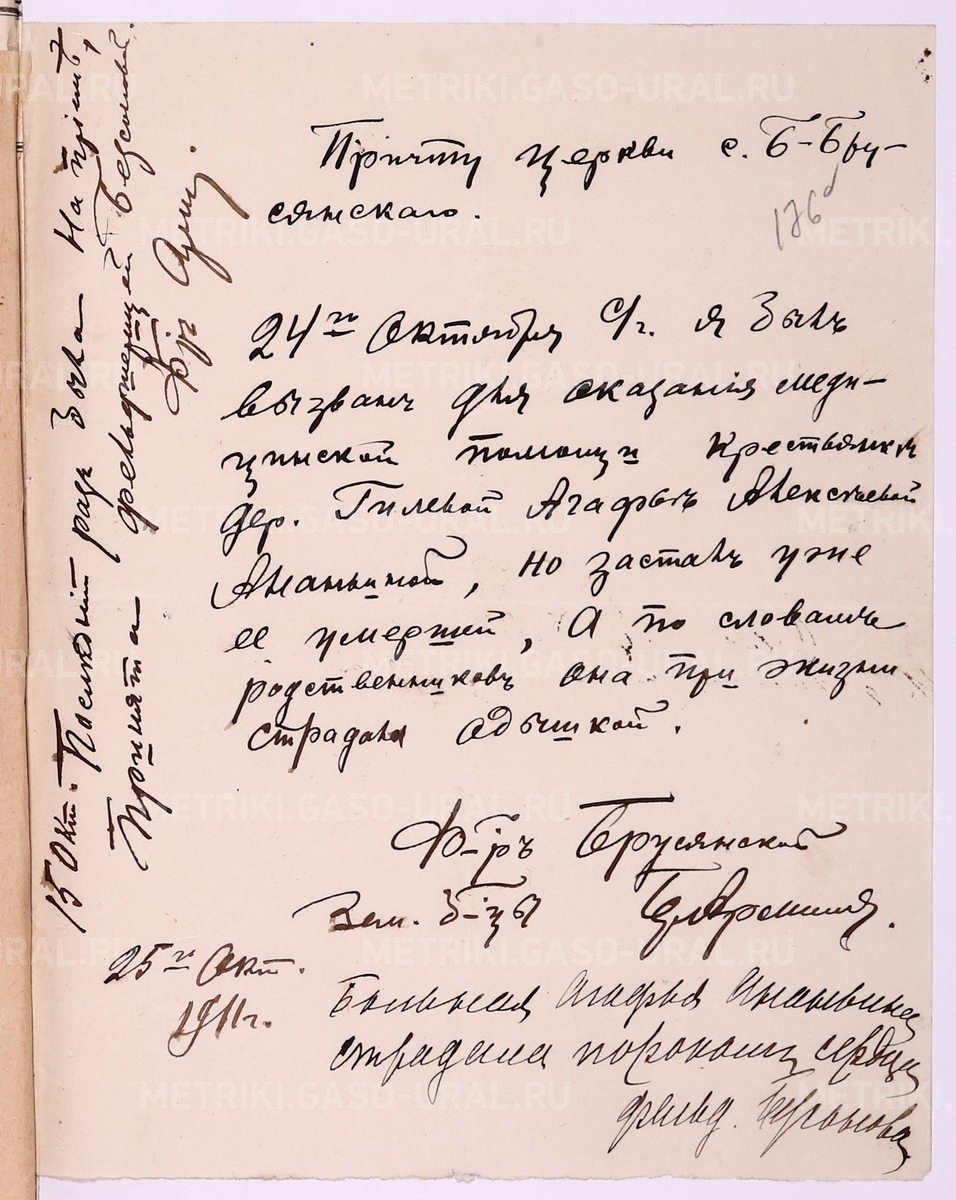 Причту церкви с. Б-Бру-
сянскаго.
176
24го Октября с/г. я былъ
вызванъ для оказанія меди-
цинской помощи крестьянкѣ
дер. Гилевой Агафьѣ Алексѣевой
Ананьиной, но засталъ уже
ее умершей, а по словамъ
родственниковъ она при жизни
страдала одышкой.
Ф-ръ Брусянской
Зем. б-цы
25го Окт.
1911г.
Больная Агафья Ананьина
страдала порокомъ сердца
фельд.
15 Окт. Послѣдній разъ была на пріемѣ,
принята фельдшерицей Безсоновой.